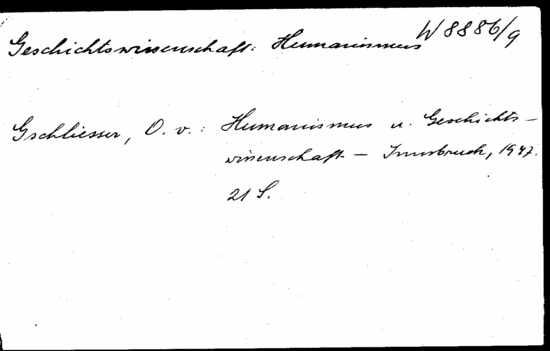 W 8886/9
Geschichtswissenschaft: Humanismus
Gschliesser, O. v.: Humanismus u. Geschichts-
wissenschaft – Innsbruck, 1947.
21 S.